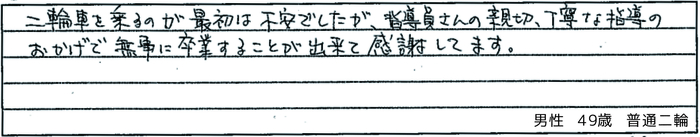 二輪車を乗るのが最初は不安でしたが、指導員さんの親切、丁寧な指導の
おかげで無事に卒業することが出来て感謝してます。
男性 49歳 普通二輪